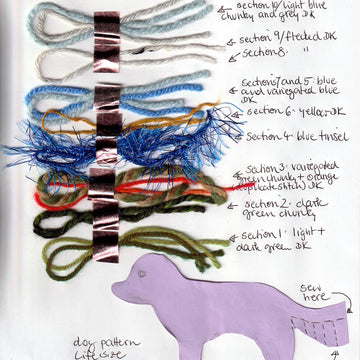 section 10/light blue
chunky and grey DK
section 9/flecked DK
section 8 "
sections 7 and 5: blue
and variegated blue
DK
section 6: yellow DK
section 4: blue tinsel
section 3: variegated
green chunky + orange
(duplicate stitch) DK
section 2: dark
green chunky
section 1: light +
dark green DK
sew
here
dog pattern
life size